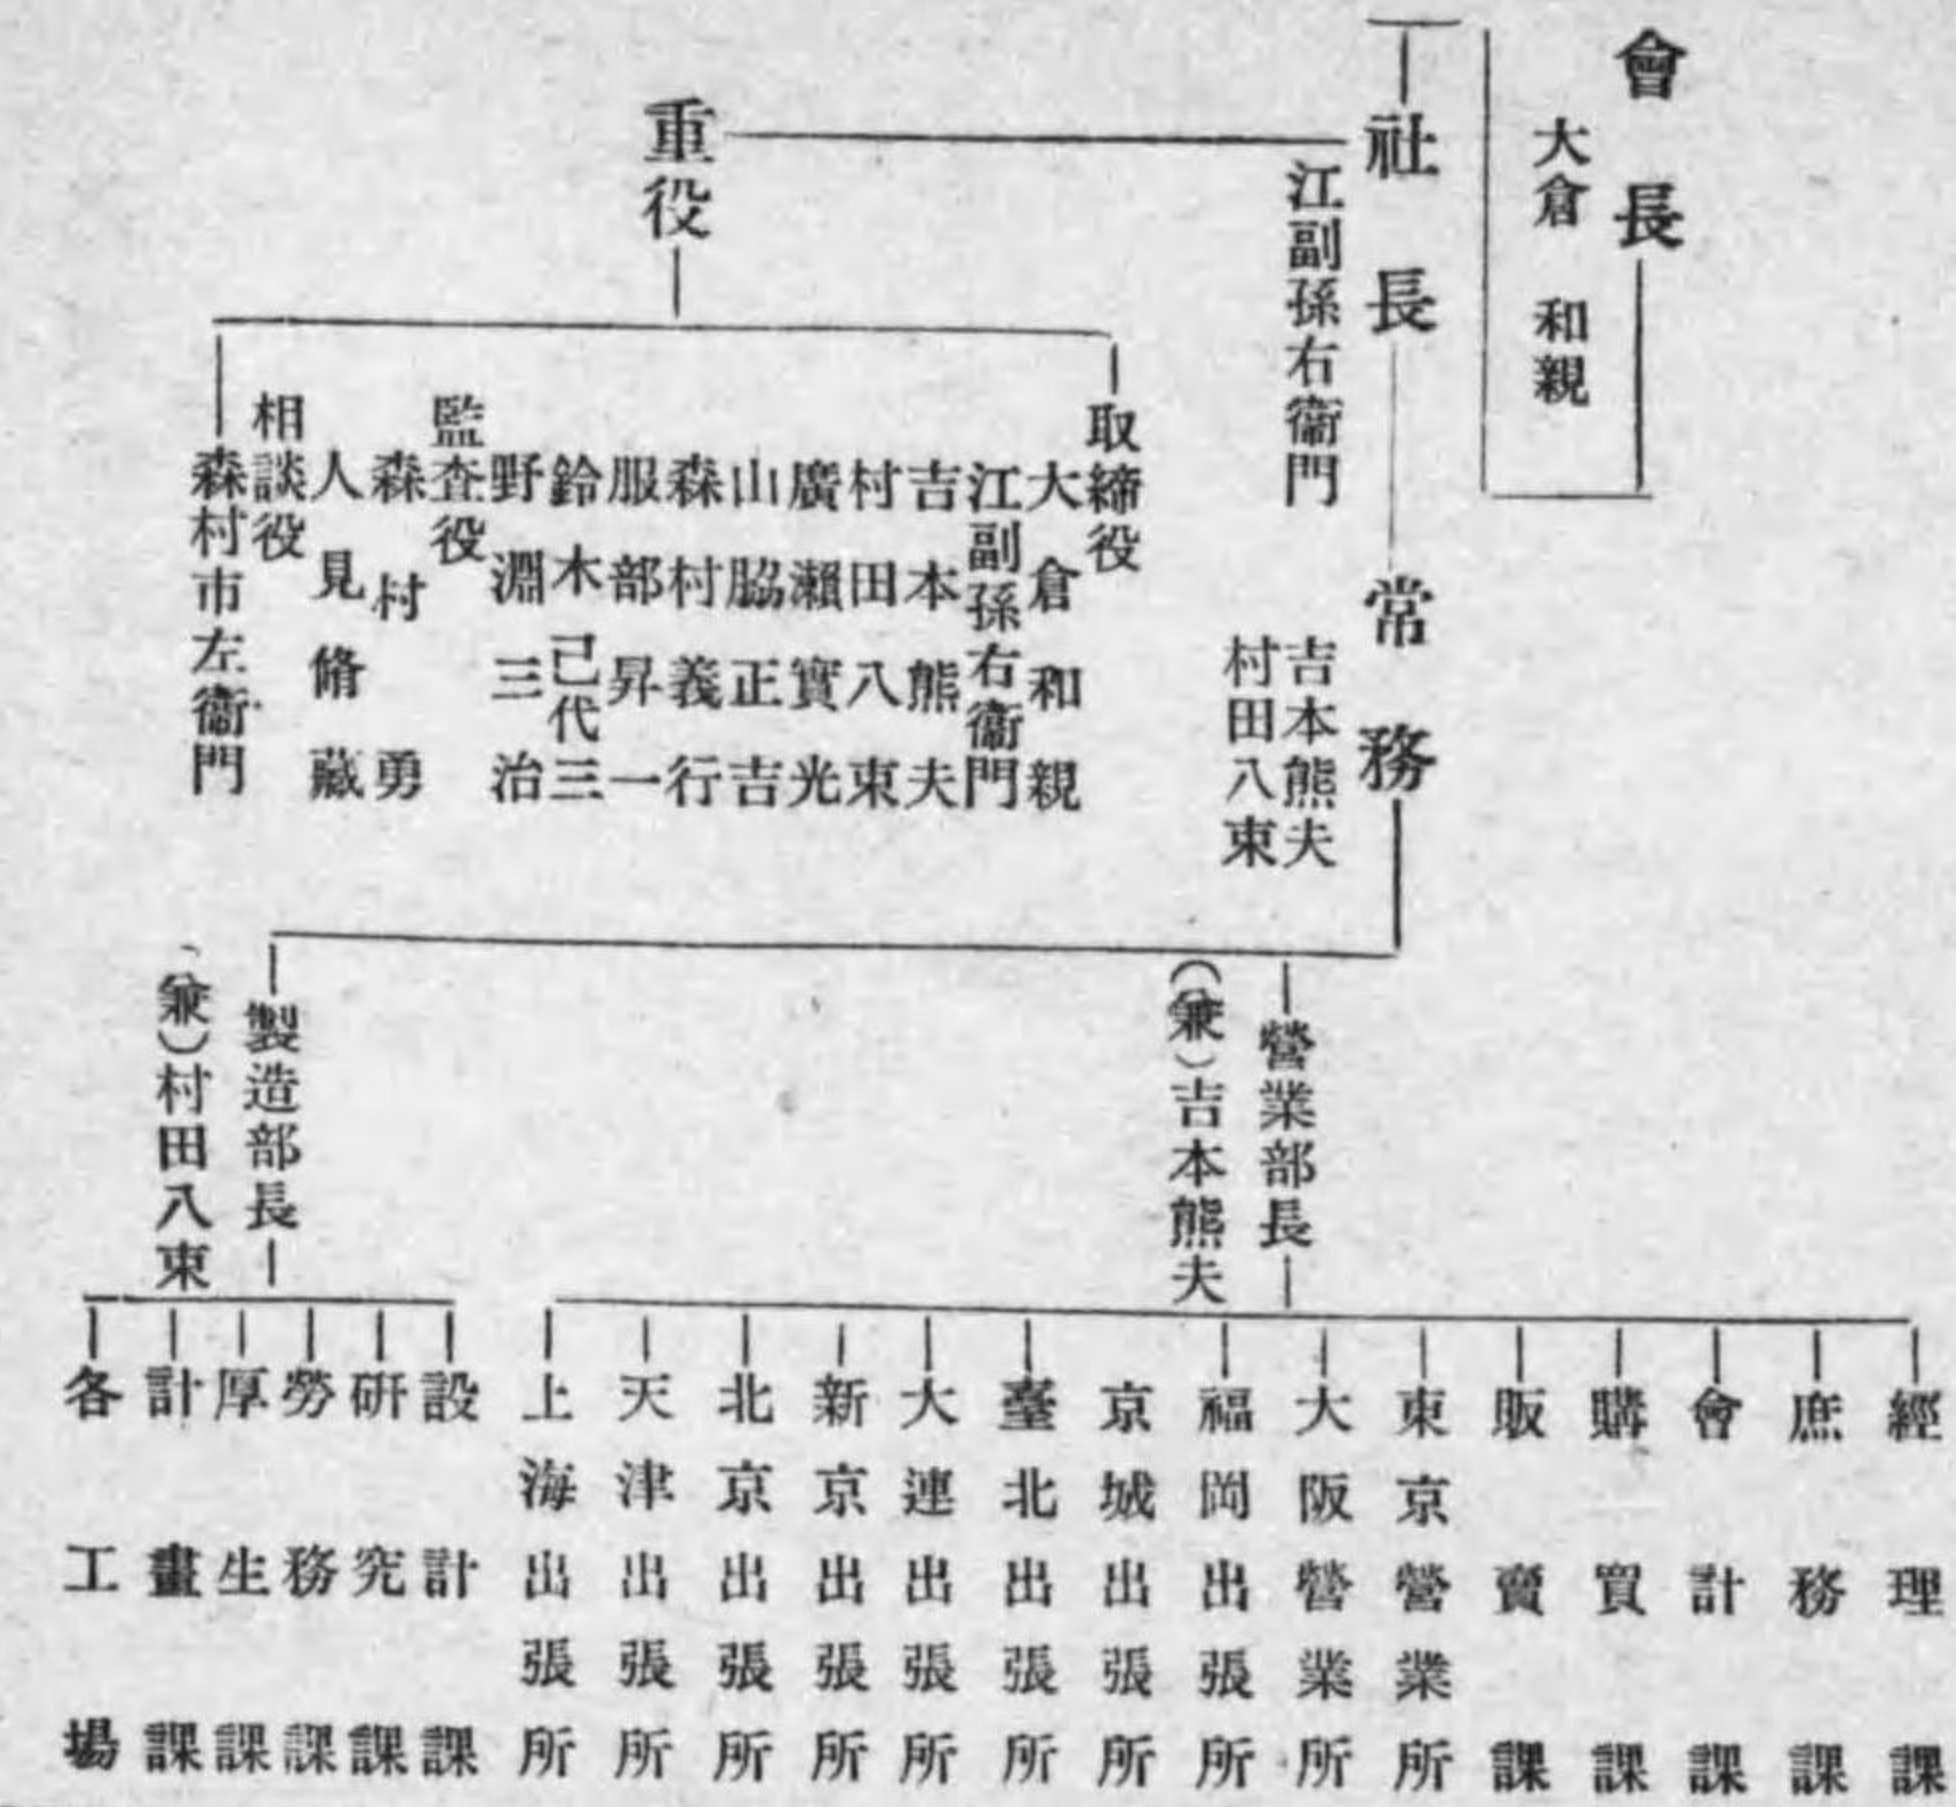 會長
大倉和親
社長
江副孫右衞門
常務
吉本熊夫
村田八束
重役
取締役
大倉和親
江副孫右衞門
吉本熊夫
村田八束
廣瀨實光
山脇正吉
森村義行
服部昇一
鈴木己代三
野淵三治
監査役
森村勇
人見脩藏
相談役
森村市左衞門
營業部長
(兼)吉本熊夫
經理課
庶務課
會計課
購買課
販賣課
東京營業所
大阪營業所
福岡出張所
京城出張所
臺北出張所
大連出張所
新京出張所
北京出張所
天津出張所
上海出張所
製造部長
(兼)村田八束
設計課
研究課
勞務課
厚生課
計畫課
各工場